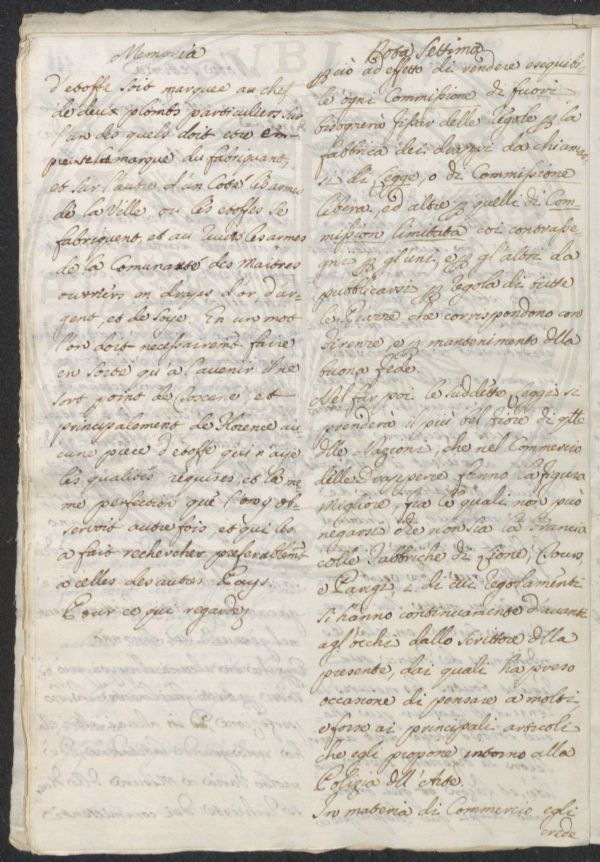 Memoria
d'etoffe soit marquée au chef
de deux plombs particuliers sur
l'un des quels doit etre em-
preinte la marque du fabriquant,
et sur l'autre d'un Coté les armes
de la Ville, ou les etoffes se
fabriquent, et au les armes
de la Comunauté des Maitres
ouvriers en drays d'or, d'ar-
gent, et de Soye. En un mot
l'on doit necessairemt. faire
en sorte qu'à l'avenir il ne
sort point de Toscane, et
principalement de Florence au-
cune piece d'etoffe qui n'aye
les qualités requises, et la me-
me perfection que l'on y ob-
servoit autre fois, et qui les
a fait rechercher preferablemt.
a celles des autres Pays.
Pour ce qui regarde
Settima
ciò ad effetto di rendere esequibi-
le ogni Commissione di fuori
bisognerà fissar delle regole p la
fabbrica dei drappi da chiamar-
si di Legge, o di Commissione
libera, ed altre p quelle di Com-
missione limitata coi contrasse-
gni p gl'uni, e p gl'altri da
pubblicarsi p regola di tutte
le Piazze che corrispondono con
Firenze e p mantenimento dlla
buona fede.
Nel far poi le suddette Leggi si
prenderà il più bel fiore di qlle
dlle Nazioni, che nel Commercio
delle Drapperie fanno la figura
Migliore, fra le quali non può
negarsi che non sia la Francia
colle Fabbriche di Lione, Tours,
e Parigi, i di cui regolamenti
si hanno continuamente d'avanti
agl'occhi dallo Scrittore dlla
presente, dai quali ha preso
occasione di pensare a molti,
e forse ai principali articoli
che egli propone intorno alla
Polizia dll'Arte.
In materia di Commercio egli
crede